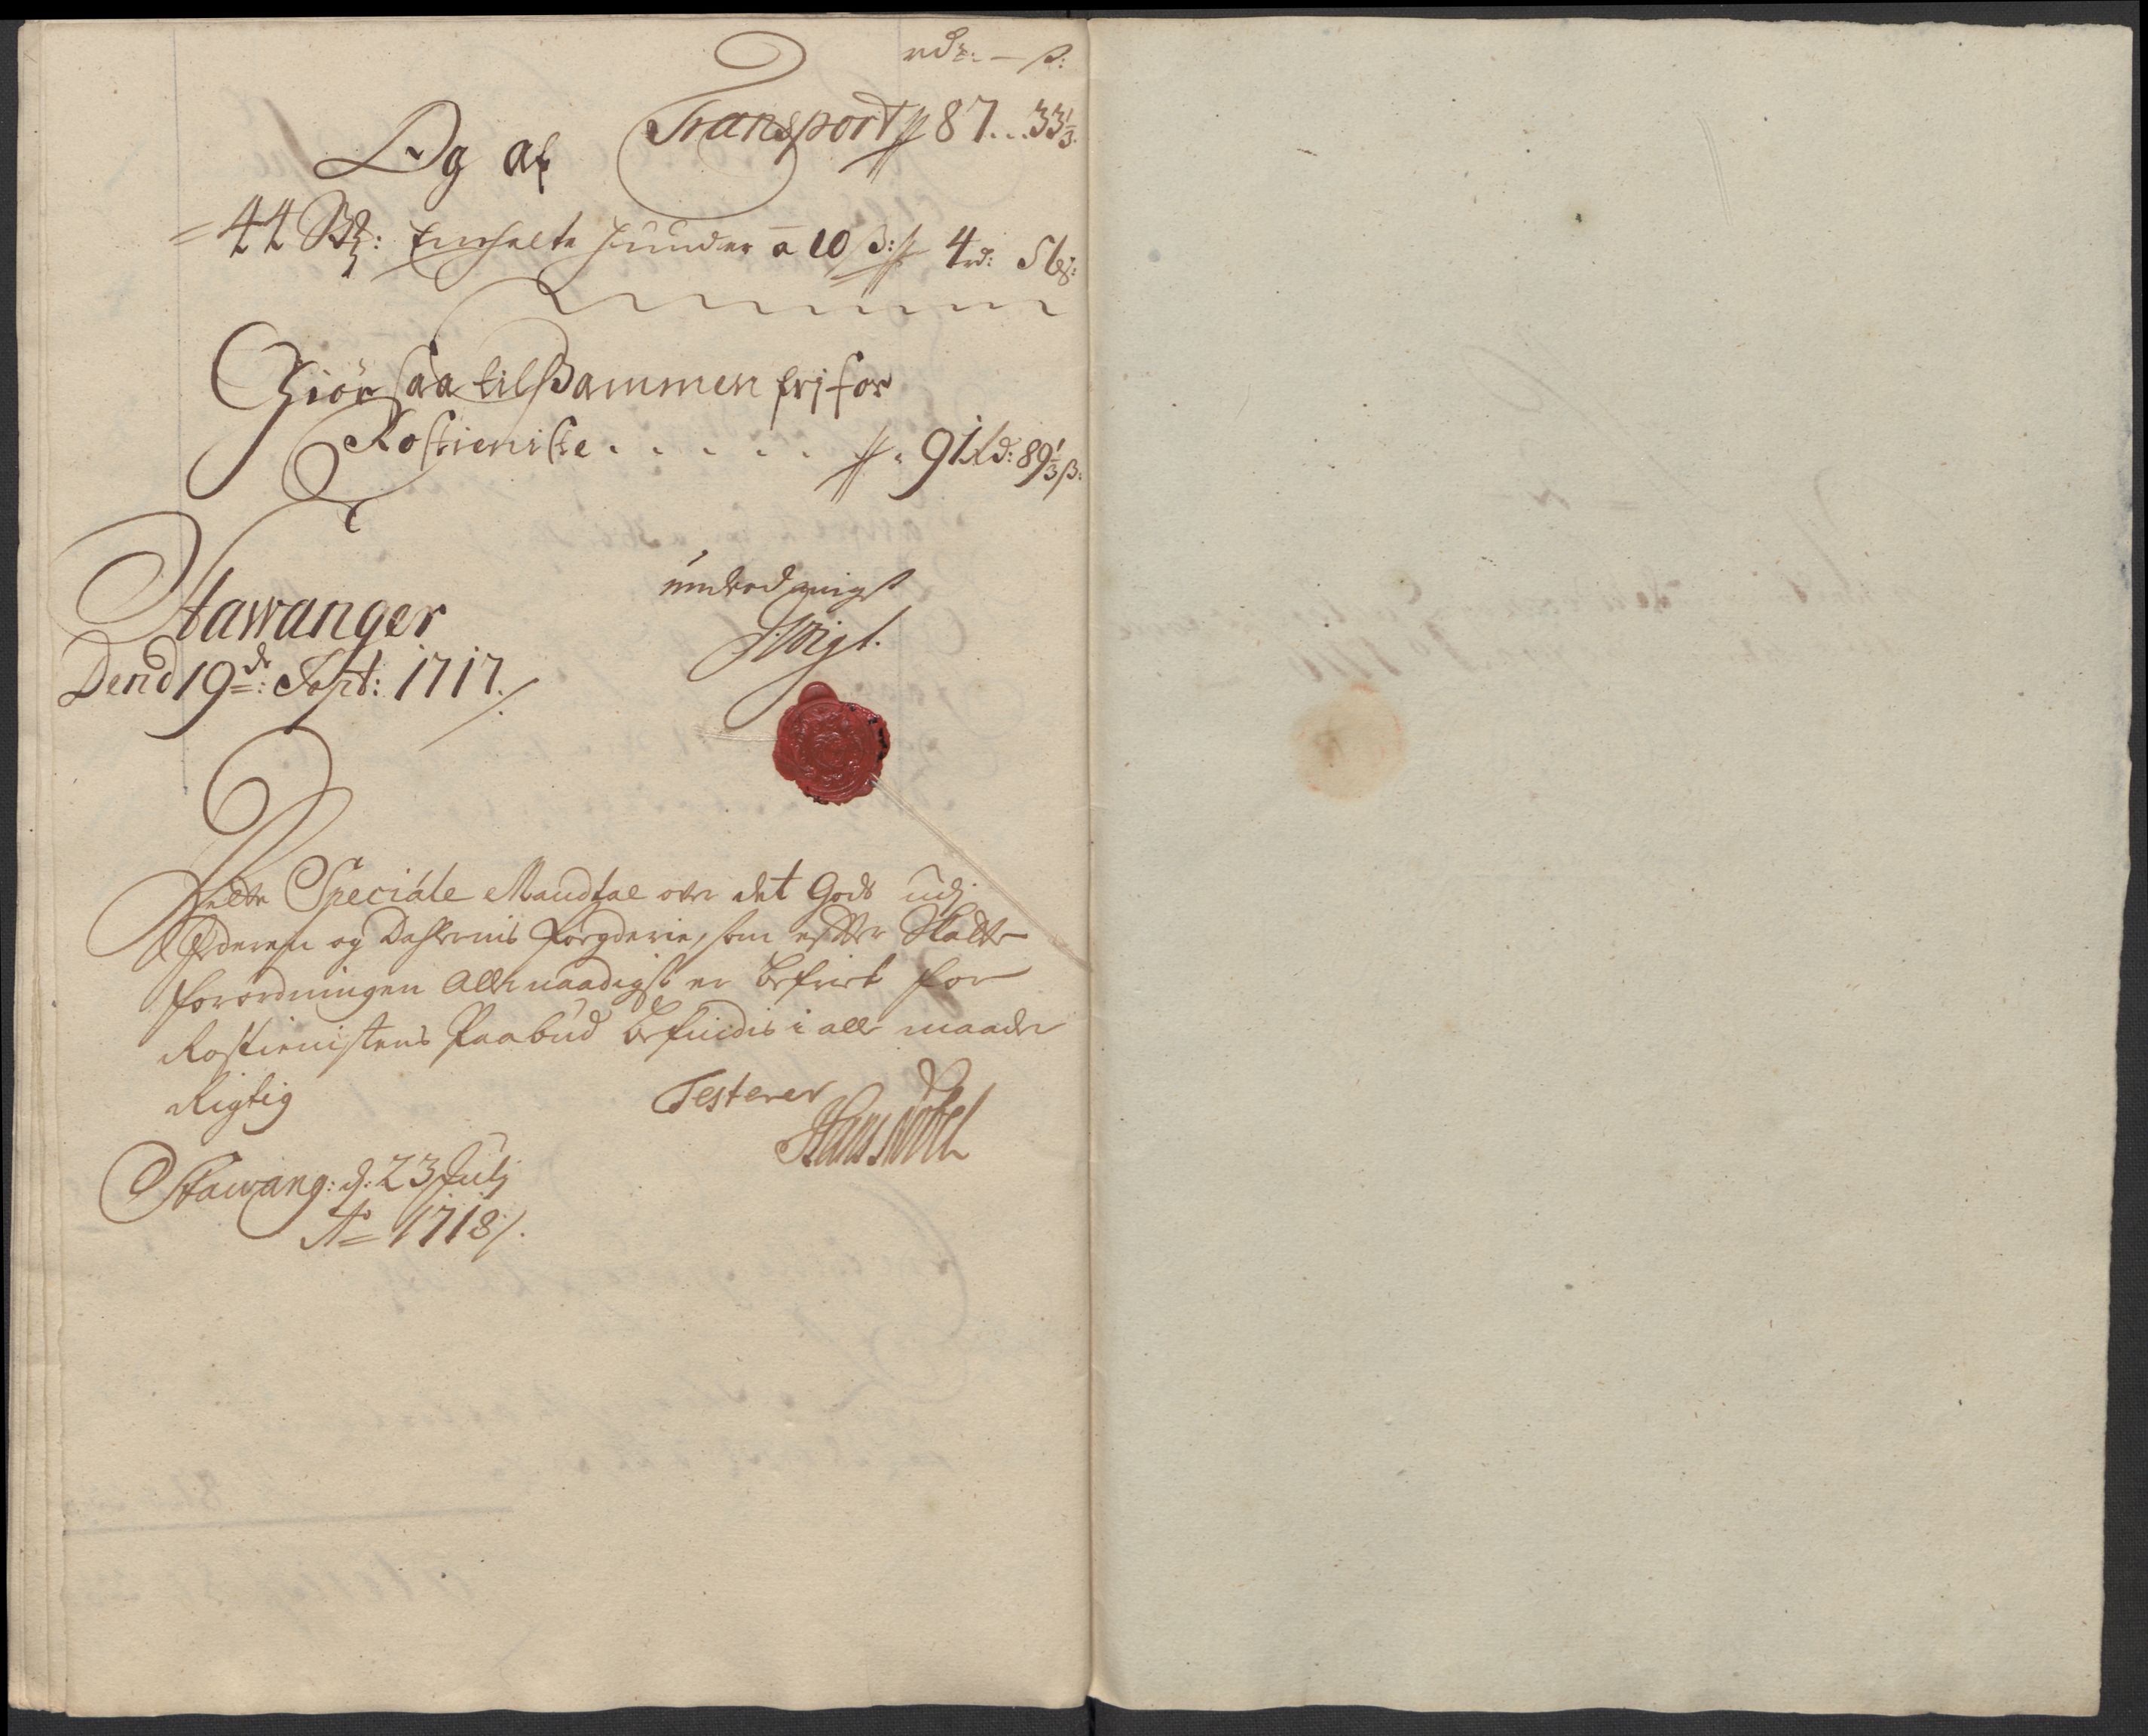 rdr: — ß:
Transport // 87...33⅓.
Og af
= 44 St: Enchelte Hunder a 10 ß: // 4 rd: 56 ß:
Giör saa tilsammen frj for
Rostieniste . . . . . // . 91 Rd: 89⅓ ß:
Stawanger
Dend 19de: Sept: 1717./.
underdanigst
Voigt.
Dette Speciale Mandtal over det Gods udj
og Dahlernis Fogderie, som efter Skatte
forordningen Allernaadigst er befriet for
Rostienistens Paabud befindis i alle maader
Rigtig
Testerer
Hans Nobel
Stawang: d: 23 Julj
Ao 1718/.